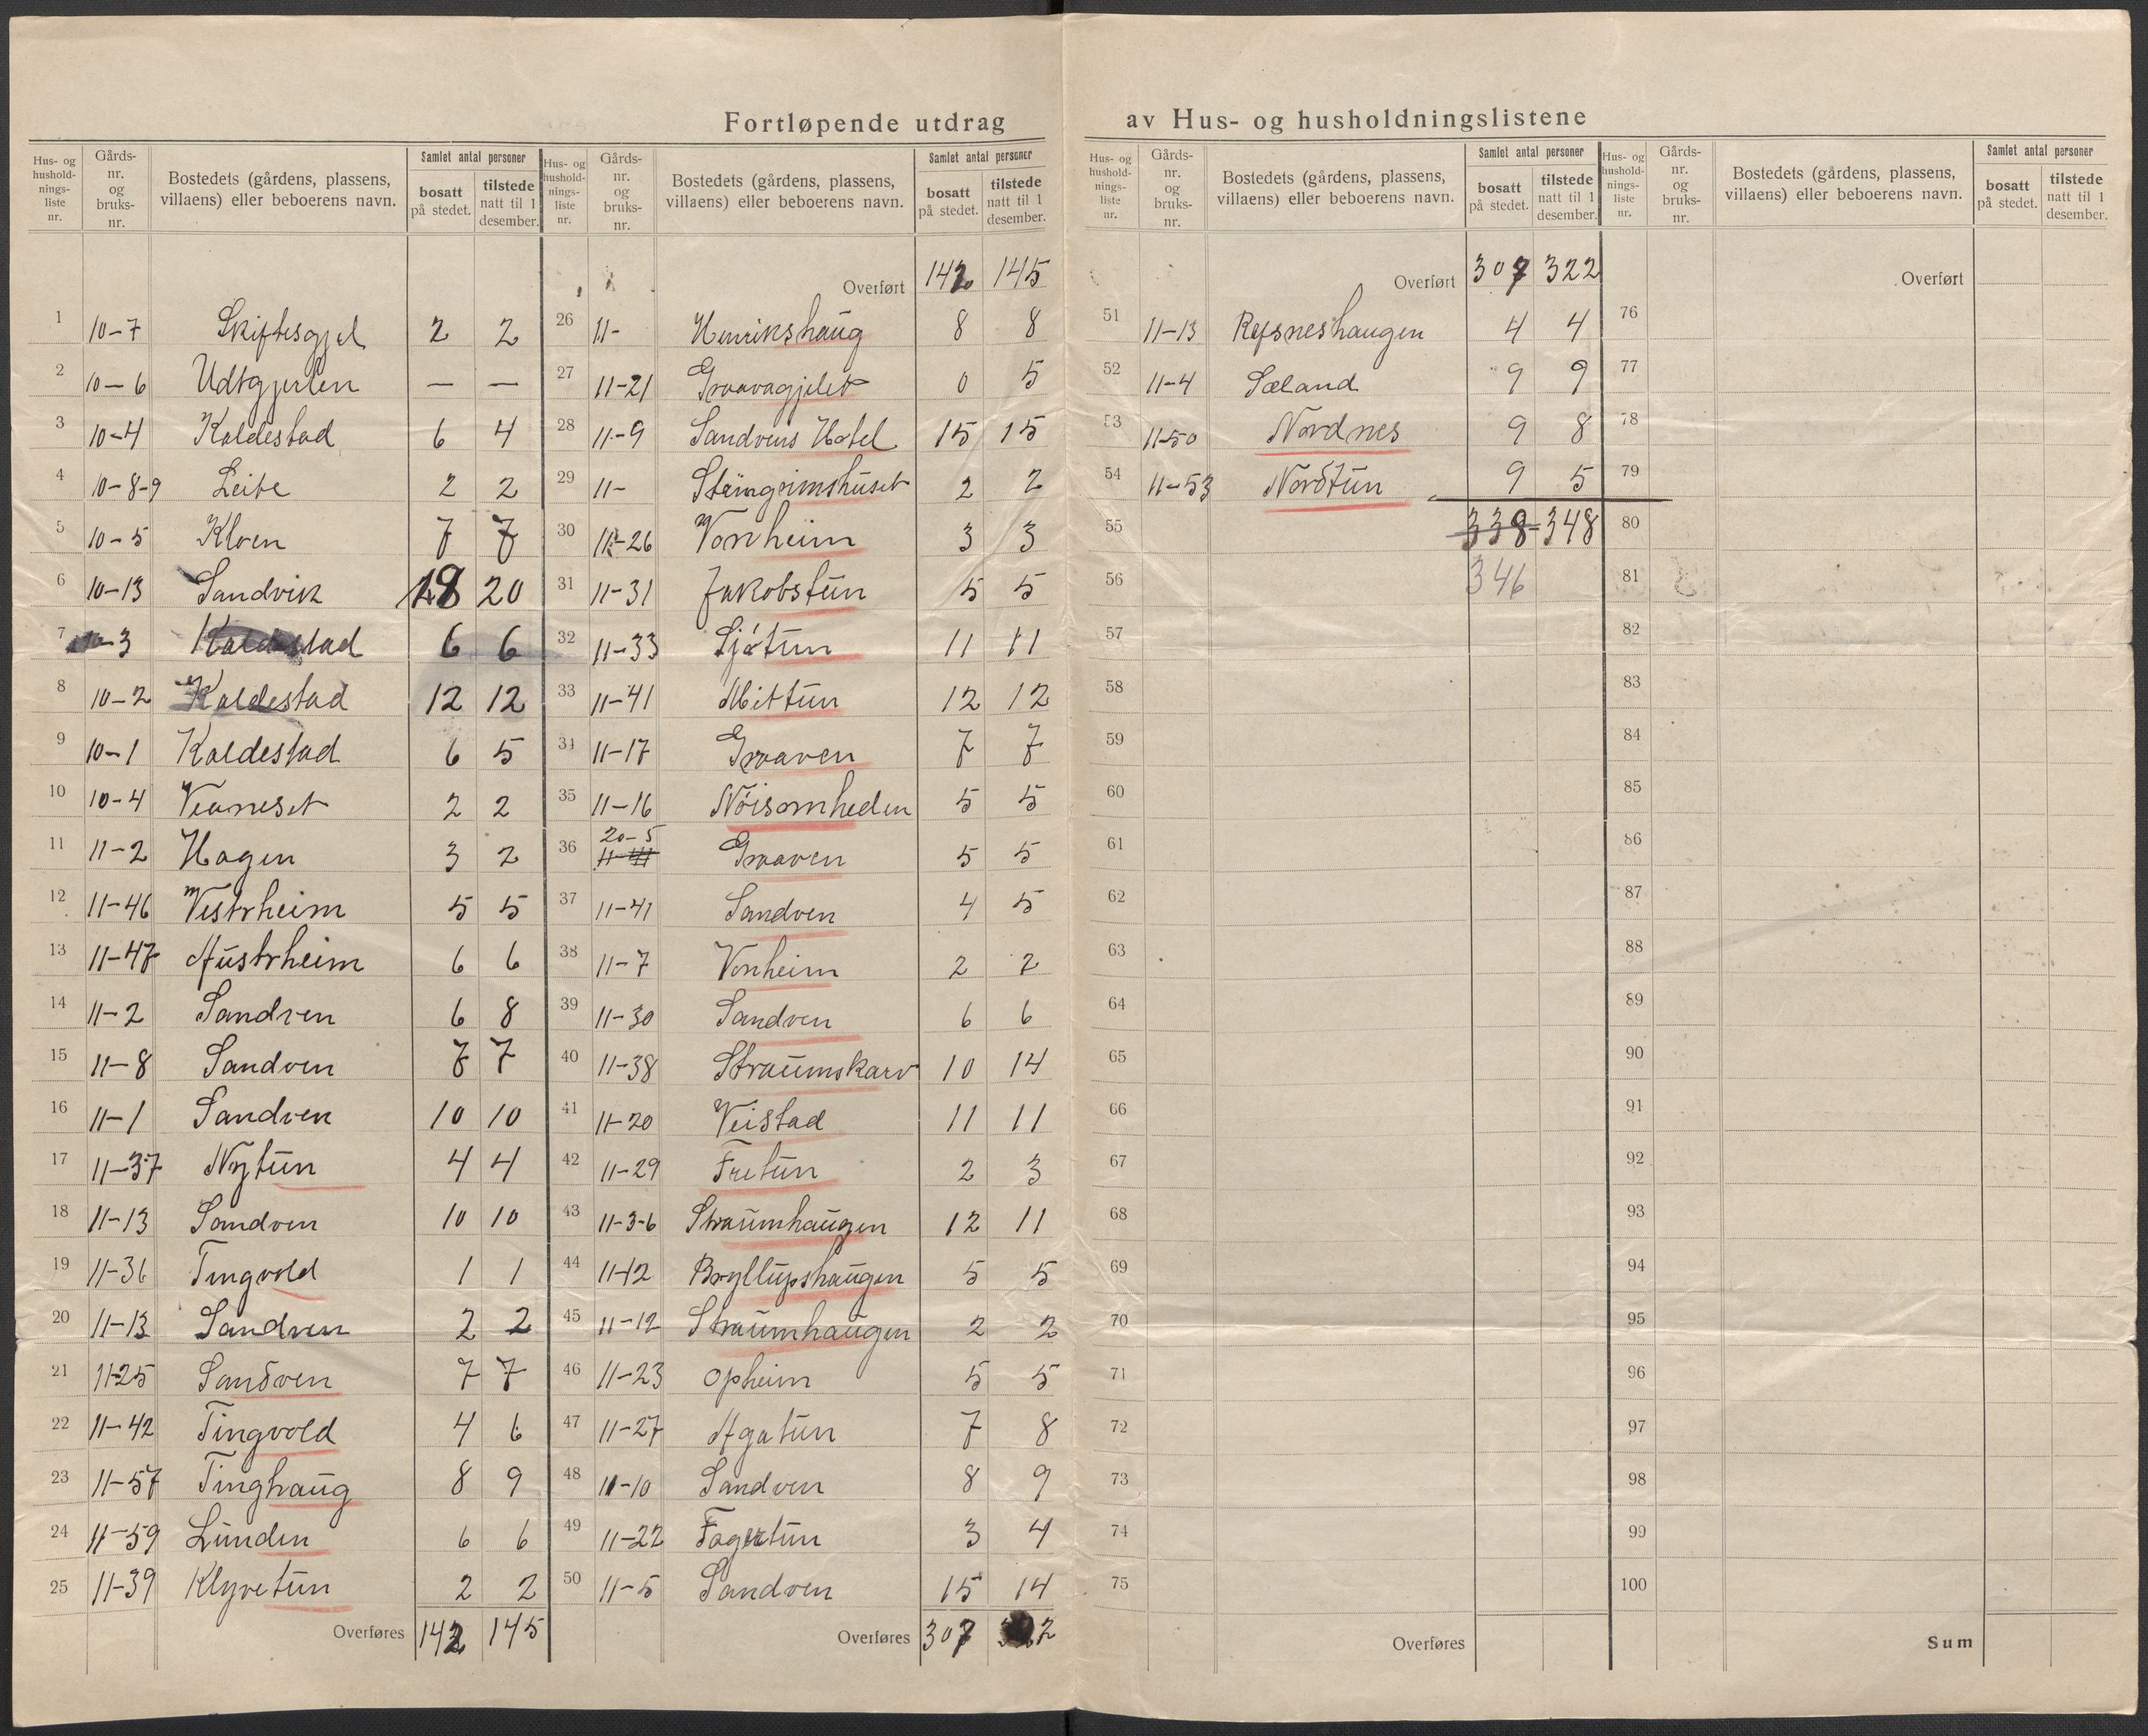 Fortløpende utdrag av Hus- og husholdningslistene
Hus- og husholdnings-liste nr. Gårds-nr. og bruks-nr. Bostedets (gårdens, plassens, villaens) eller beboerens navn. Samlet antal personer bosatt på stedet. tilstede natt til 1 desember.
1 10-7 Skiftesgjel 2 2
2 10-6 Udtgjerlen — —
3 10-4 Kaldestad 6 4
4 10-8-9 Leite 2 2
5 10-5 Kloen 7 7
6 10-13 Sandvik 18 20
7 10-3 Kaldestad 6 6
8 10-2 Kaldestad 12 12
9 10-1 Kaldestad 6 5
10 10-4 Veaneset 2 2
11 11-2 Hagen 3 2
12 11-46 Vestrheim 5 5
13 11-47 Austrheim 6 6
14 11-2 Sandven 6 8
15 11-8 Sandven 7 7
16 11-1 Sandven 10 10
17 11-37 Nytun 4 4
18 11-13 Sandven 10 10
19 11-36 Tingvold 1 1
20 11-13 Sandven 2 2
21 11-25 Sandven 7 7
22 11-42 Tingvold 4 6
23 11-57 Tinghaug 8 9
24 11-59 Lunden 6 6
25 11-39 Klyvetun 2 2
Overføres 142 145
Hus- og husholdnings-liste nr. Gårds-nr. og bruks-nr. Bostedets (gårdens, plassens, villaens) eller beboerens navn. Samlet antal personer bosatt på stedet. tilstede natt til 1 desember.
Overført 142 145
26 11- Henrikshaug 8 8
27 11-21 Graavagjelet 0 5
28 11-9 Sandvens Hotel 15 15
29 11- Steingrimshuset 2 2
30 11-26 Vonheim 3 3
31 11-31 Jakobstun 5 5
32 11-33 Sjøtun 11 11
33 11-41 Mittun 12 12
34 11-17 Graaven 7 7
35 11-16 Nöisomheden 5 5
36 20-5 Graaven 5 5
37 11-41 Sandven 4 5
38 11-7 Vonheim 2 2
39 11-30 Sandven 6 6
40 11-38 Straumskarv 10 14
41 11-20 Veistad 11 11
42 11-29 Fretun 2 3
43 11-3-6 Straumhaugen 12 11
44 11-12 Bryllupshaugen 5 5
45 11-12 Straumhaugen 2 2
46 11-23 Opheim 5 5
47 11-27 Agatun 7 8
48 11-10 Sandven 8 9
49 11-22 Fagertun 3 4
50 11-5 Sandven 15 14
Overføres 307
Hus- og husholdnings-liste nr. Gårds-nr. og bruks-nr. Bostedets (gårdens, plassens, villaens) eller beboerens navn. Samlet antal personer bosatt på stedet. tilstede natt til 1 desember.
Overført 307 322
51 11-13 Reisneshaugen 4 4
52 11-4 Sæland 9 9
53 11-50 Nordnes 9 8
54 11-53 Nordtun 9 5
55 338-348
56 346
57
58
59
60
61
62
63
64
65
66
67
68
69
70
71
72
73
74
75
Overføres
Hus- og husholdnings-liste nr. Gårds-nr. og bruks-nr. Bostedets (gårdens, plassens, villaens) eller beboerens navn. Samlet antal personer bosatt på stedet. tilstede natt til 1 desember.
Overført
76
77
78
79
80
81
82
83
84
85
86
87
88
89
90
91
92
93
94
95
96
97
98
99
100
Sum